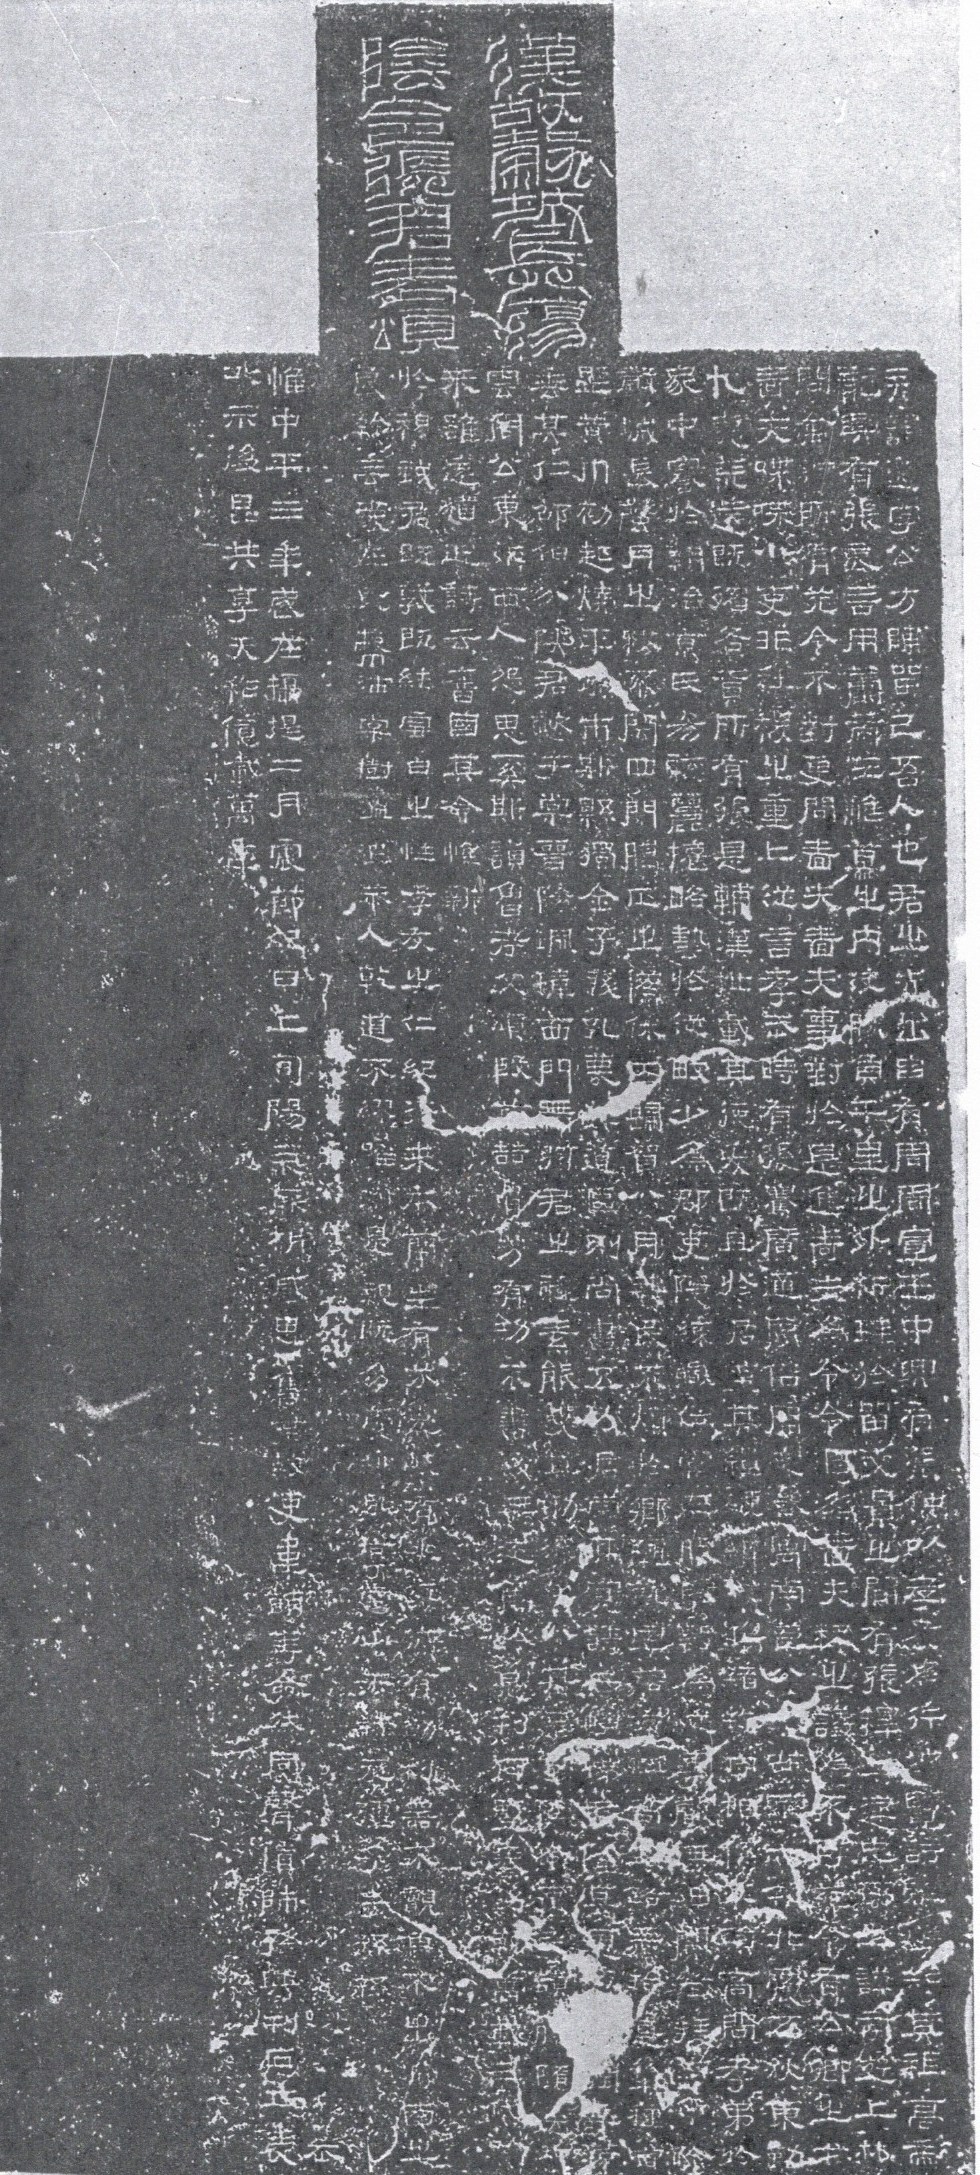 漢故穀城長蕩
陰令張君表頌
君諱遷字公方陳留己吾人也君之先出自有周周宣王中興有張仲以孝友為行披覽詩雅煥知其祖高帝龍
興有張良善用籌策在帷幕之內決勝負千里之外析珪於留文景之間有張釋之建忠弼之謨帝遊上林
問禽狩所有苑令不對更問嗇夫嗇夫事對於是進嗇夫為令令退為嗇夫釋之議為不可苑令有公卿之才
嗇夫喋喋小吏非社稷之重上從言孝武時有張騫廣通風俗開定畿寓南苞八蠻西羈六戎北震五狄東勤
九夷荒遠既殯各貢所有張是輔漢世載其德爰既且於君蓋其繵縺纘戎鴻緒牧守相係不殞高問孝弟於
家中謇於朝治京氏易聰麗權略藝於從畋少為郡吏隱練職位常在股肱數為從事聲無細聞徵拜郎中除
穀城長蠶月之務不閉四門臘正之傺休囚歸賀八月筭民不煩於鄉隨就虛落存恤高年路無拾遺犁種宿
野黃巾初起燒平城市斯縣獨全子賤孔蔑其道區別尚書五教君崇其寬詩云愷悌君隆其恩東里潤色君
垂其仁邵伯分陝君懿于棠晉陽珮瑋西門帶弦君之體素能雙其勛流化八基遷蕩陰令吏民頡頏隨送如
雲周公東征西人怨思奚斯讚魯考父頌殷前喆遺芳有功不書後無述焉於是刊石豎表銘勒萬載三代以
來雖遠猶近詩云舊國其命惟新
於穆我君既敦既純雪白之性孝友之仁紀行來本蘭生有芬克岐有兆綏御有勳利器不覿魚不出淵國之
良幹垂愛在民蔽沛棠樹溫溫恭人乾道不繆唯淑是親既多受祉永享南山干祿無疆子子孫孫
惟中平三年歲在攝提二月震節紀日上旬陽氣厥析感思舊君故吏韋萌等僉然同聲賃師孫興刊石立表
以示後昆共享天祚億載萬年